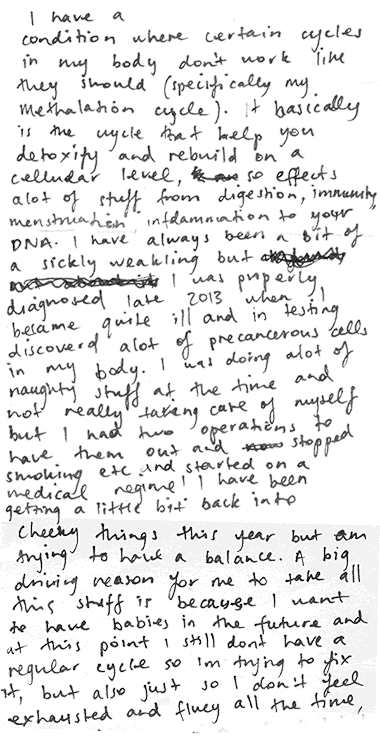 I have a
condition where certain cycles
in my body don't work like
they should (specifically my
methalation cycle). It basically
is the cycle that help you
detoxify and rebuild on a
cellular level, so effects
alot of stuff from digestion, immunity
menstruation infdamnation to your
DNA. I have always been a bit of
a sickly weakling but
I was properly
diagnosed late 2013 when I
became quite ill and in testing
discoverd alot of precancerous cells
in my body. I was doing alot of
naughty stuff at the time and
not really taking care of myself
but I had two operations to
have them out and stopped
smoking etc and started on a
medical regime! I have been
getting a little bit back into
cheeky things this year but am
trying to have a balance. A big
driving reason for me to take all
this stuff is because I want
to have babies in the future and
at this point I still dont have a
regular cycle so im trying to fix
it, but also just so I don't feel
exhausted and fluey all the time,